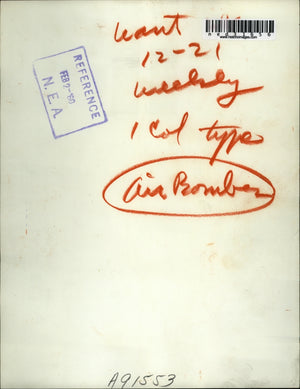 want
12-21
weekly
1 Col type
Air Bomber
REFERENCE
FEB 2-60
N. E. A.
A91553